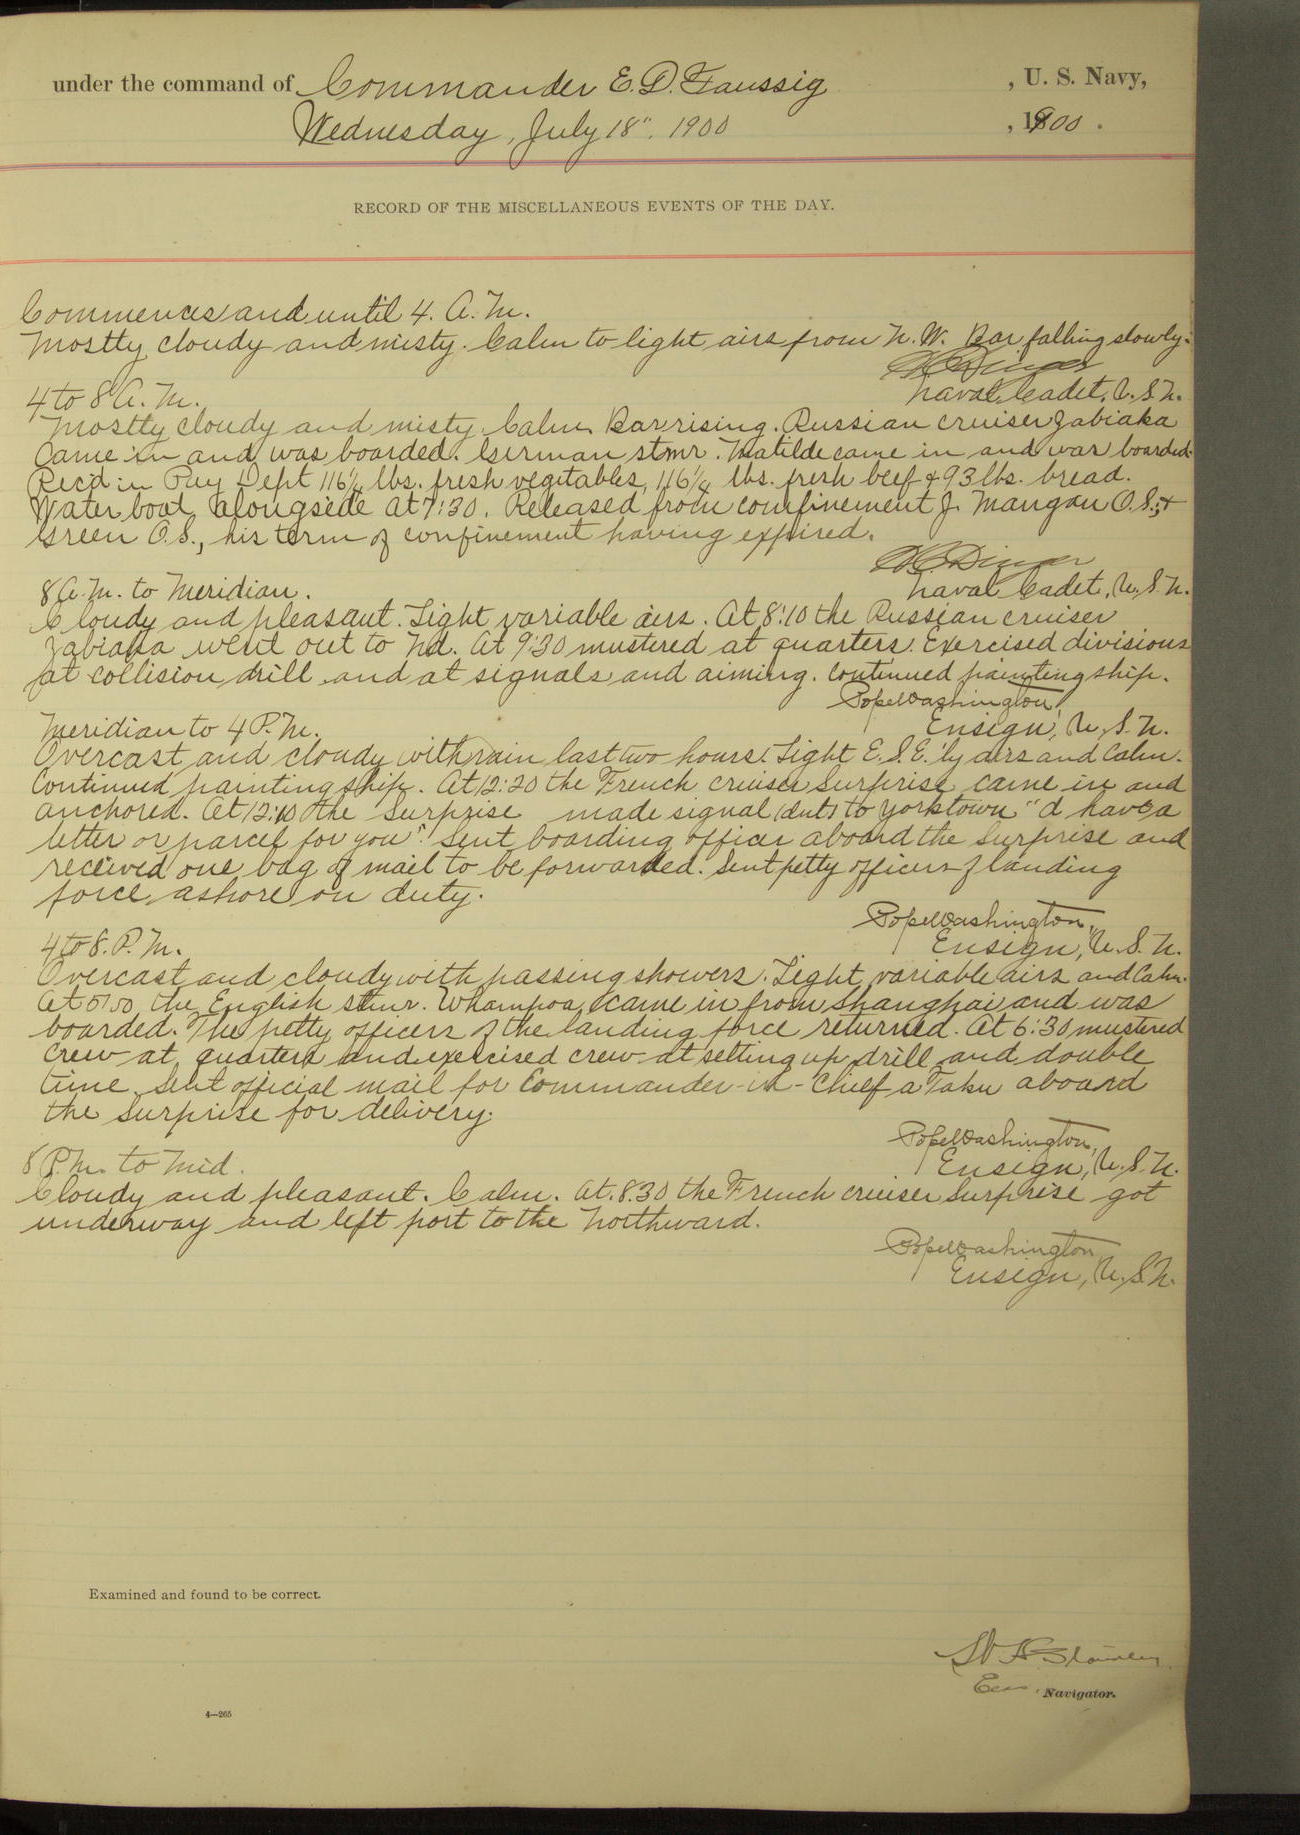 under the command of Commander E. D. Taussig , U. S. Navy,
Wednesday, July 18". 1900 , 1900 .
RECORD OF THE MISCELLANEOUS EVENTS OF THE DAY.
Commences and until 4. A. M.
Mostly cloudy and misty. Calm to light airs from N. W. Bar falling slowly.
Naval Cadet, U. S. N.
4 to 8 A. M.
Mostly cloudy and misty. Calm. Bar rising. Russian cruiser Zabiaka
came in and was boarded. German stmr. Matilde came in and was boarded.
Rec'd in Pay Dept 116¼ lbs. fresh vegetables, 116¼ lbs. fresh beef & 93 lbs. bread.
Water boat alongside at 7:30. Released from confinement J. Mangan O.S.,
Green O.S., his term of confinement having expired.
Naval Cadet, U. S. N.
8 A. M. to Meridian.
Cloudy and pleasant. Light variable airs. At 8:10 the Russian cruiser
Zabiaka went out to Nd. At 9:30 mustered at quarters. Exercised divisions
at collision drill and at signals and aiming. Continued painting ship.
Pope Washington,
Ensign, U. S. N.
Meridian to 4 P. M.
Overcast and cloudy with rain last two hours. Light E. S. E.'ly airs and calm.
Continued painting ship. At 12:20 the French cruiser Surprise came in and
anchored. At 12:40 the Surprise made signal to Yorktown "I have a
letter or parcel for you". Sent boarding officer aboard the Surprise and
received one bag of mail to be forwarded. Sent petty officers of landing
force ashore on duty.
Pope Washington,
Ensign, U. S. N.
4 to 8. P. M.
Overcast and cloudy with passing showers. Light variable airs and calm.
At 5:50 the English stmr. Whampoa came in from Shanghai and was
boarded. The petty officers of the landing force returned. At 6:30 mustered
crew at quarters and exercised crew at setting up drill and double
time. Sent official mail for Commander-in-Chief a Taku aboard
the Surprise for delivery.
Pope Washington,
Ensign, U. S. N.
8 P. M. to Mid.
Cloudy and pleasant. Calm. At 8.30 the French cruiser Surprise got
underway and left port to the Northward.
Pope Washington,
Ensign, U. S. N.
Examined and found to be correct.
Navigator.
4—265